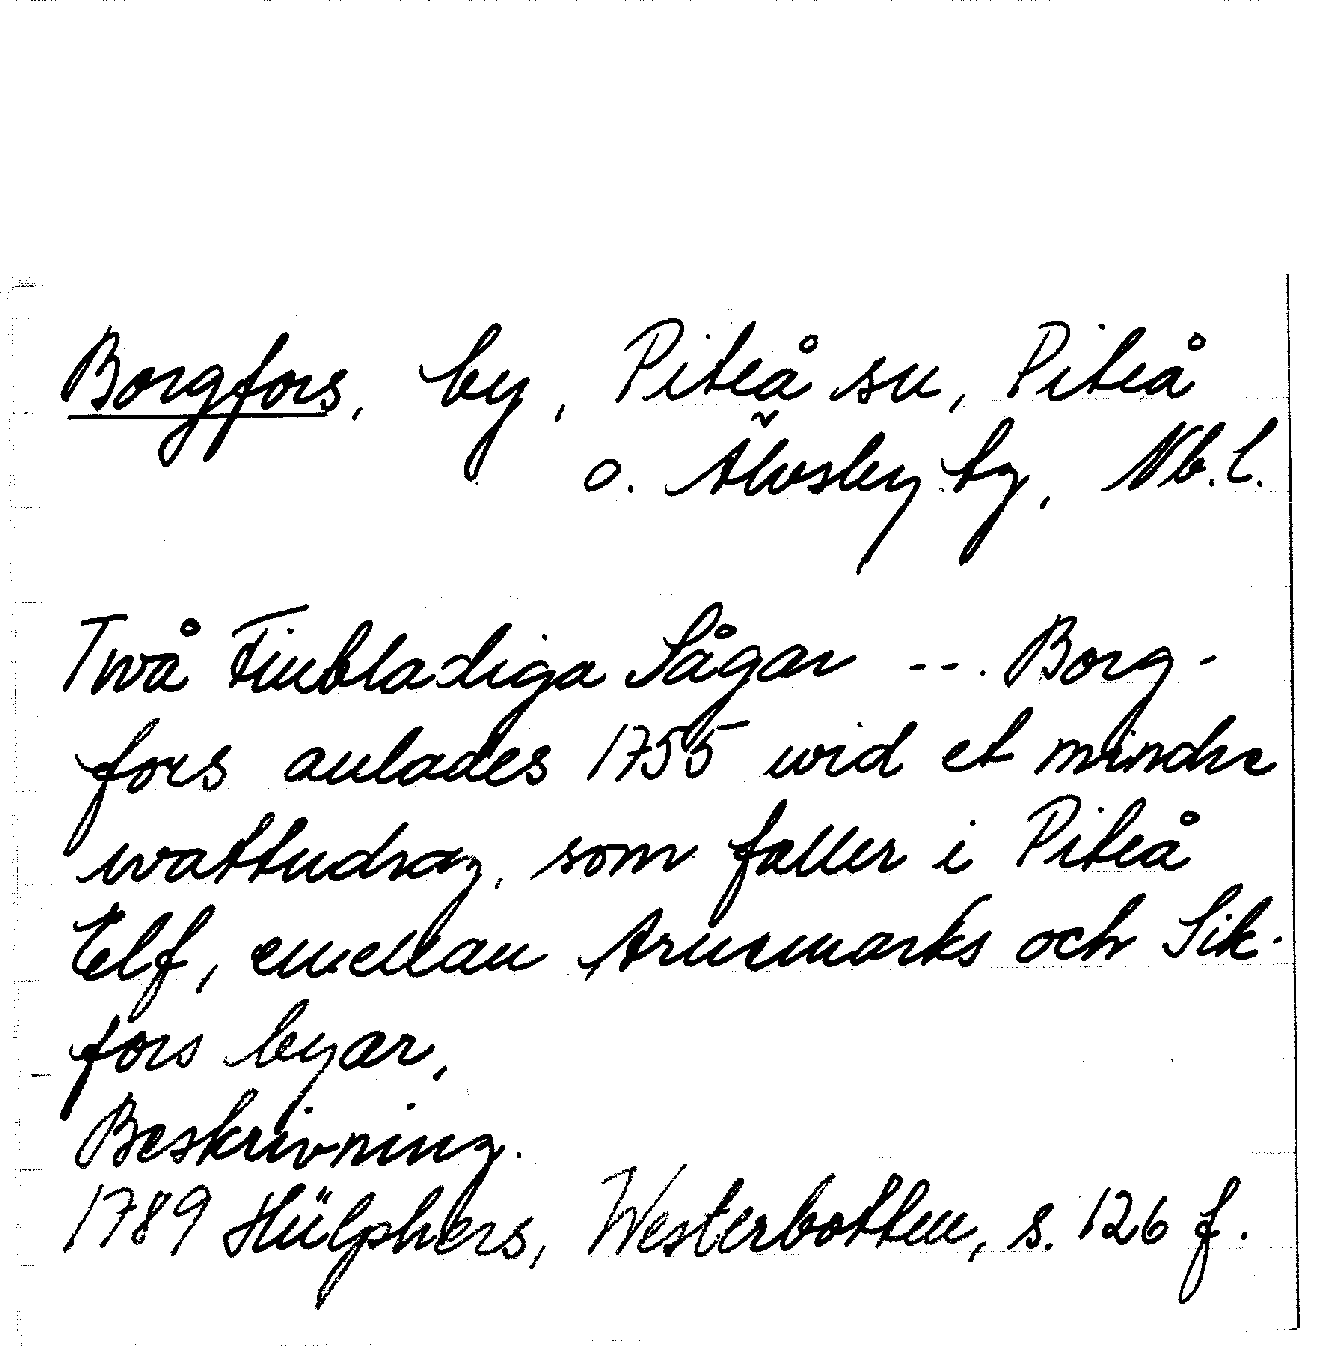 Borgfors, by, Piteå sn, Piteå
o. Älvsby tg, Nb.l.
Twå Finbladiga Sågar --. Borg-
fors anlades 1755 wid et mindre
wattudrag, som faller i Piteå
Elf, emellan Arnemarks och Sik-
fors byar.
Beskrivning.
1789 Hülphers, Westerbotten, s. 126 f.